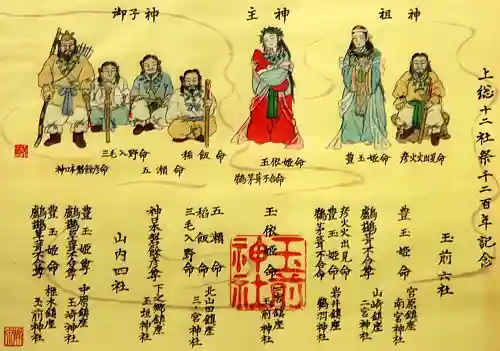 上総十二社祭千二百年記念
祖神
主神
御子神
彦火火出見命
豊玉姫命
玉依姫命
鵜茅葺不合命
稲飯命
五瀬命
三毛入野命
神日本磐余彦命
玉前六社
豊玉姫命
宮原鎮座
南宮神社
鵜鶿草葺不合尊
山崎鎮座
二宮神社
彦火火出見命
豊玉姫命
鵜茅葺不合命
岩井鎮座
鶴羽神社
玉依姫命
玉前神社
五瀬命
稲飯命
三毛入野命
北山田鎮座
三之宮神社
神日本磐余彦尊
下之郷鎮座
玉垣神社
山内四社
豊玉姫尊
鵜鶿草葺不合尊
中原鎮座
玉崎神社
豊玉姫命
鵜鶿草葺不合尊
椎木鎮座
玉前神社
玉前神社